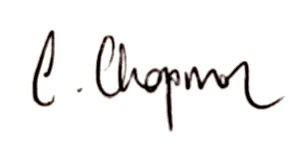 C. Chapman